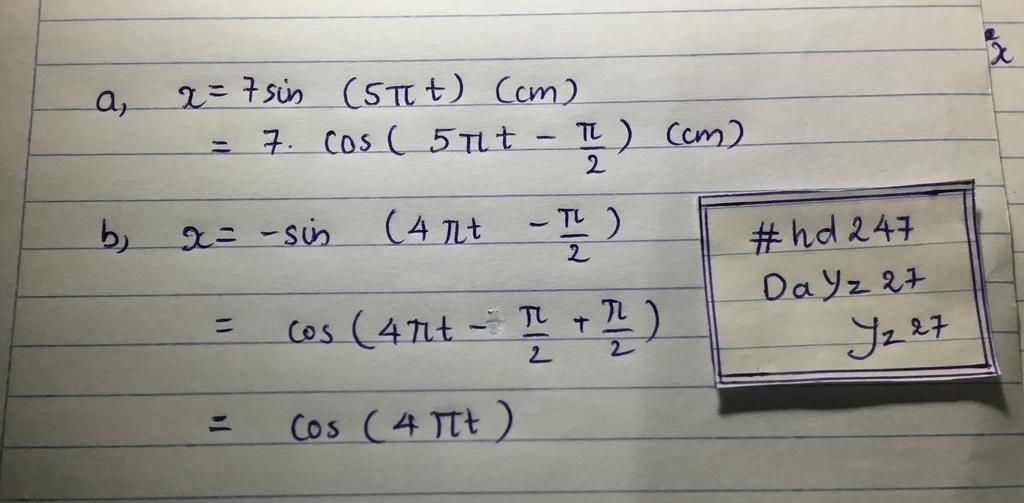 a, x = 7 sin (5πt) (cm)
= 7. cos ( 5πt − π/2 ) (cm)
b, x = −sin (4πt − π/2 )
= cos (4πt − π/2 + π/2 )
= cos (4πt)
#hd247
DaYz27
Yz27
x